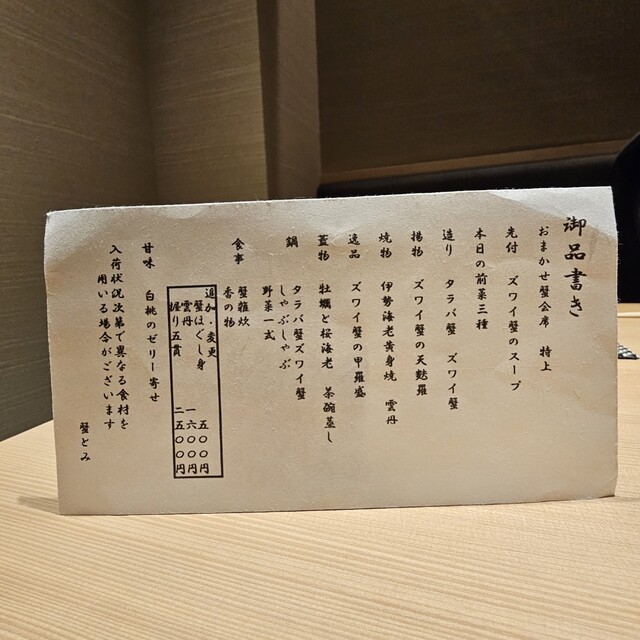 御品書き
おまかせ蟹会席　特上
先付　ズワイ蟹のスープ
本日の前菜三種
造り　タラバ蟹　ズワイ蟹
揚物　ズワイ蟹の天麩羅
焼物　伊勢海老黄身焼　雲丹
逸品　ズワイ蟹の甲羅盛
蓋物　牡蠣と桜海老　茶碗蒸し
鍋　タラバ蟹ズワイ蟹
しゃぶしゃぶ
野菜一式
食事　蟹雑炊
香の物
追加・変更
蟹ほぐし身　五〇〇円
雲丹　一六〇〇円
握り五貫　二五〇〇円
甘味　白桃のゼリー寄せ
入荷状況次第で異なる食材を
用いる場合がございます
蟹とみ